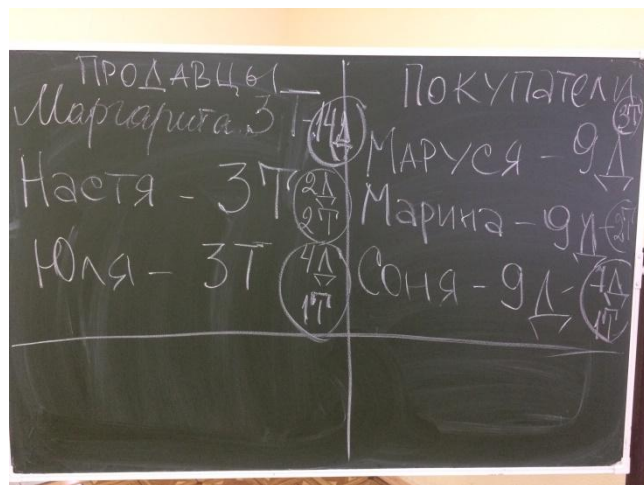 ПРОДАВЦЫ
Маргарита. 3Т - 14Д
Настя - 3Т 2Д
2Т
Юля - 3Т 4Д
1Т
ПОКУПАТЕЛИ
3Т
МАРУСЯ - 9Д
Марина - 9Д - 2Т
СОНЯ - 9Д - 4Д
1Т